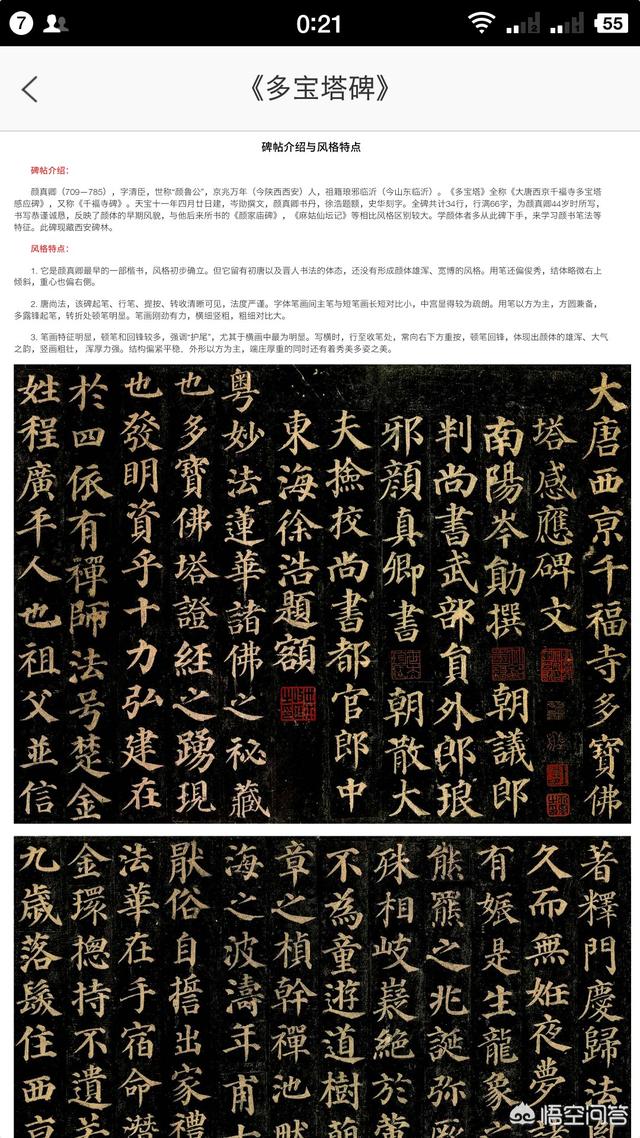 7
0:21
55
《多宝塔碑》
碑帖介绍与风格特点
碑帖介绍：
颜真卿（709－785），字清臣，世称“颜鲁公”，京兆万年（今陕西西安）人，祖籍琅邪临沂（今山东临沂）。《多宝塔》全称《大唐西京千福寺多宝塔
感应碑》，又称《千福寺碑》。天宝十一年四月廿日建，岑勋撰文，颜真卿书丹，徐浩题额，史华刻字。全碑共计34行，行满66字，为颜真卿44岁时所写，
书写恭谨诚恳，反映了颜体的早期风貌，与他后来所书的《颜家庙碑》，《麻姑仙坛记》等相比风格区别较大。学颜体者多从此碑下手，来学习颜书笔法等
特征。此碑现藏西安碑林。
风格特点：
1. 它是颜真卿最早的一部楷书，风格初步确立。但它留有初唐以及晋人书法的体态，还没有形成颜体雄浑、宽博的风格。用笔还偏俊秀，结体略微右上
倾斜，重心也偏右侧。
2. 唐尚法，该碑起笔、行笔、提按、转收清晰可见，法度严谨。字体笔画间主笔与短笔画长短对比小，中宫显得较为疏朗。用笔以方为主，方圆兼备，
多露锋起笔，转折处顿笔明显。笔画刚劲有力，横细竖粗，粗细对比大。
3. 笔画特征明显，顿笔和回锋较多，强调“护尾”，尤其于横画中最为明显。写横时，行至收笔处，常向右下方重按，顿笔回锋，体现出颜体的雄浑、大气
之韵，竖画粗壮，浑厚力强。结构偏紧平稳，外形以方为主，端庄厚重的同时还有着秀美多姿之美。
大唐西亰千福寺多寶佛
塔感應碑文
南陽岑勛撰 朝議郎
判尚書武部負外郎琅
邪顏真卿書 朝散大
夫撿挍尚書都官郎中
東海徐浩題額
粵妙法蓮華諸佛之秘藏
也多寶佛塔證經之踴現
也發明資乎十力弘建在
於四依有禪師法号楚金
姓程廣平人也祖父並信
著釋門慶歸法
久而無姙夜夢
有娠是生龍象
熊羆之兆誕弥
殊相岐嶷絕於
不為童遊道樹
章之楨幹禪池
海之波濤年甫
猒俗自誓出家禮
法華在手宿命
金環揔持不遺
九歲落髮住西亰
悟空问答